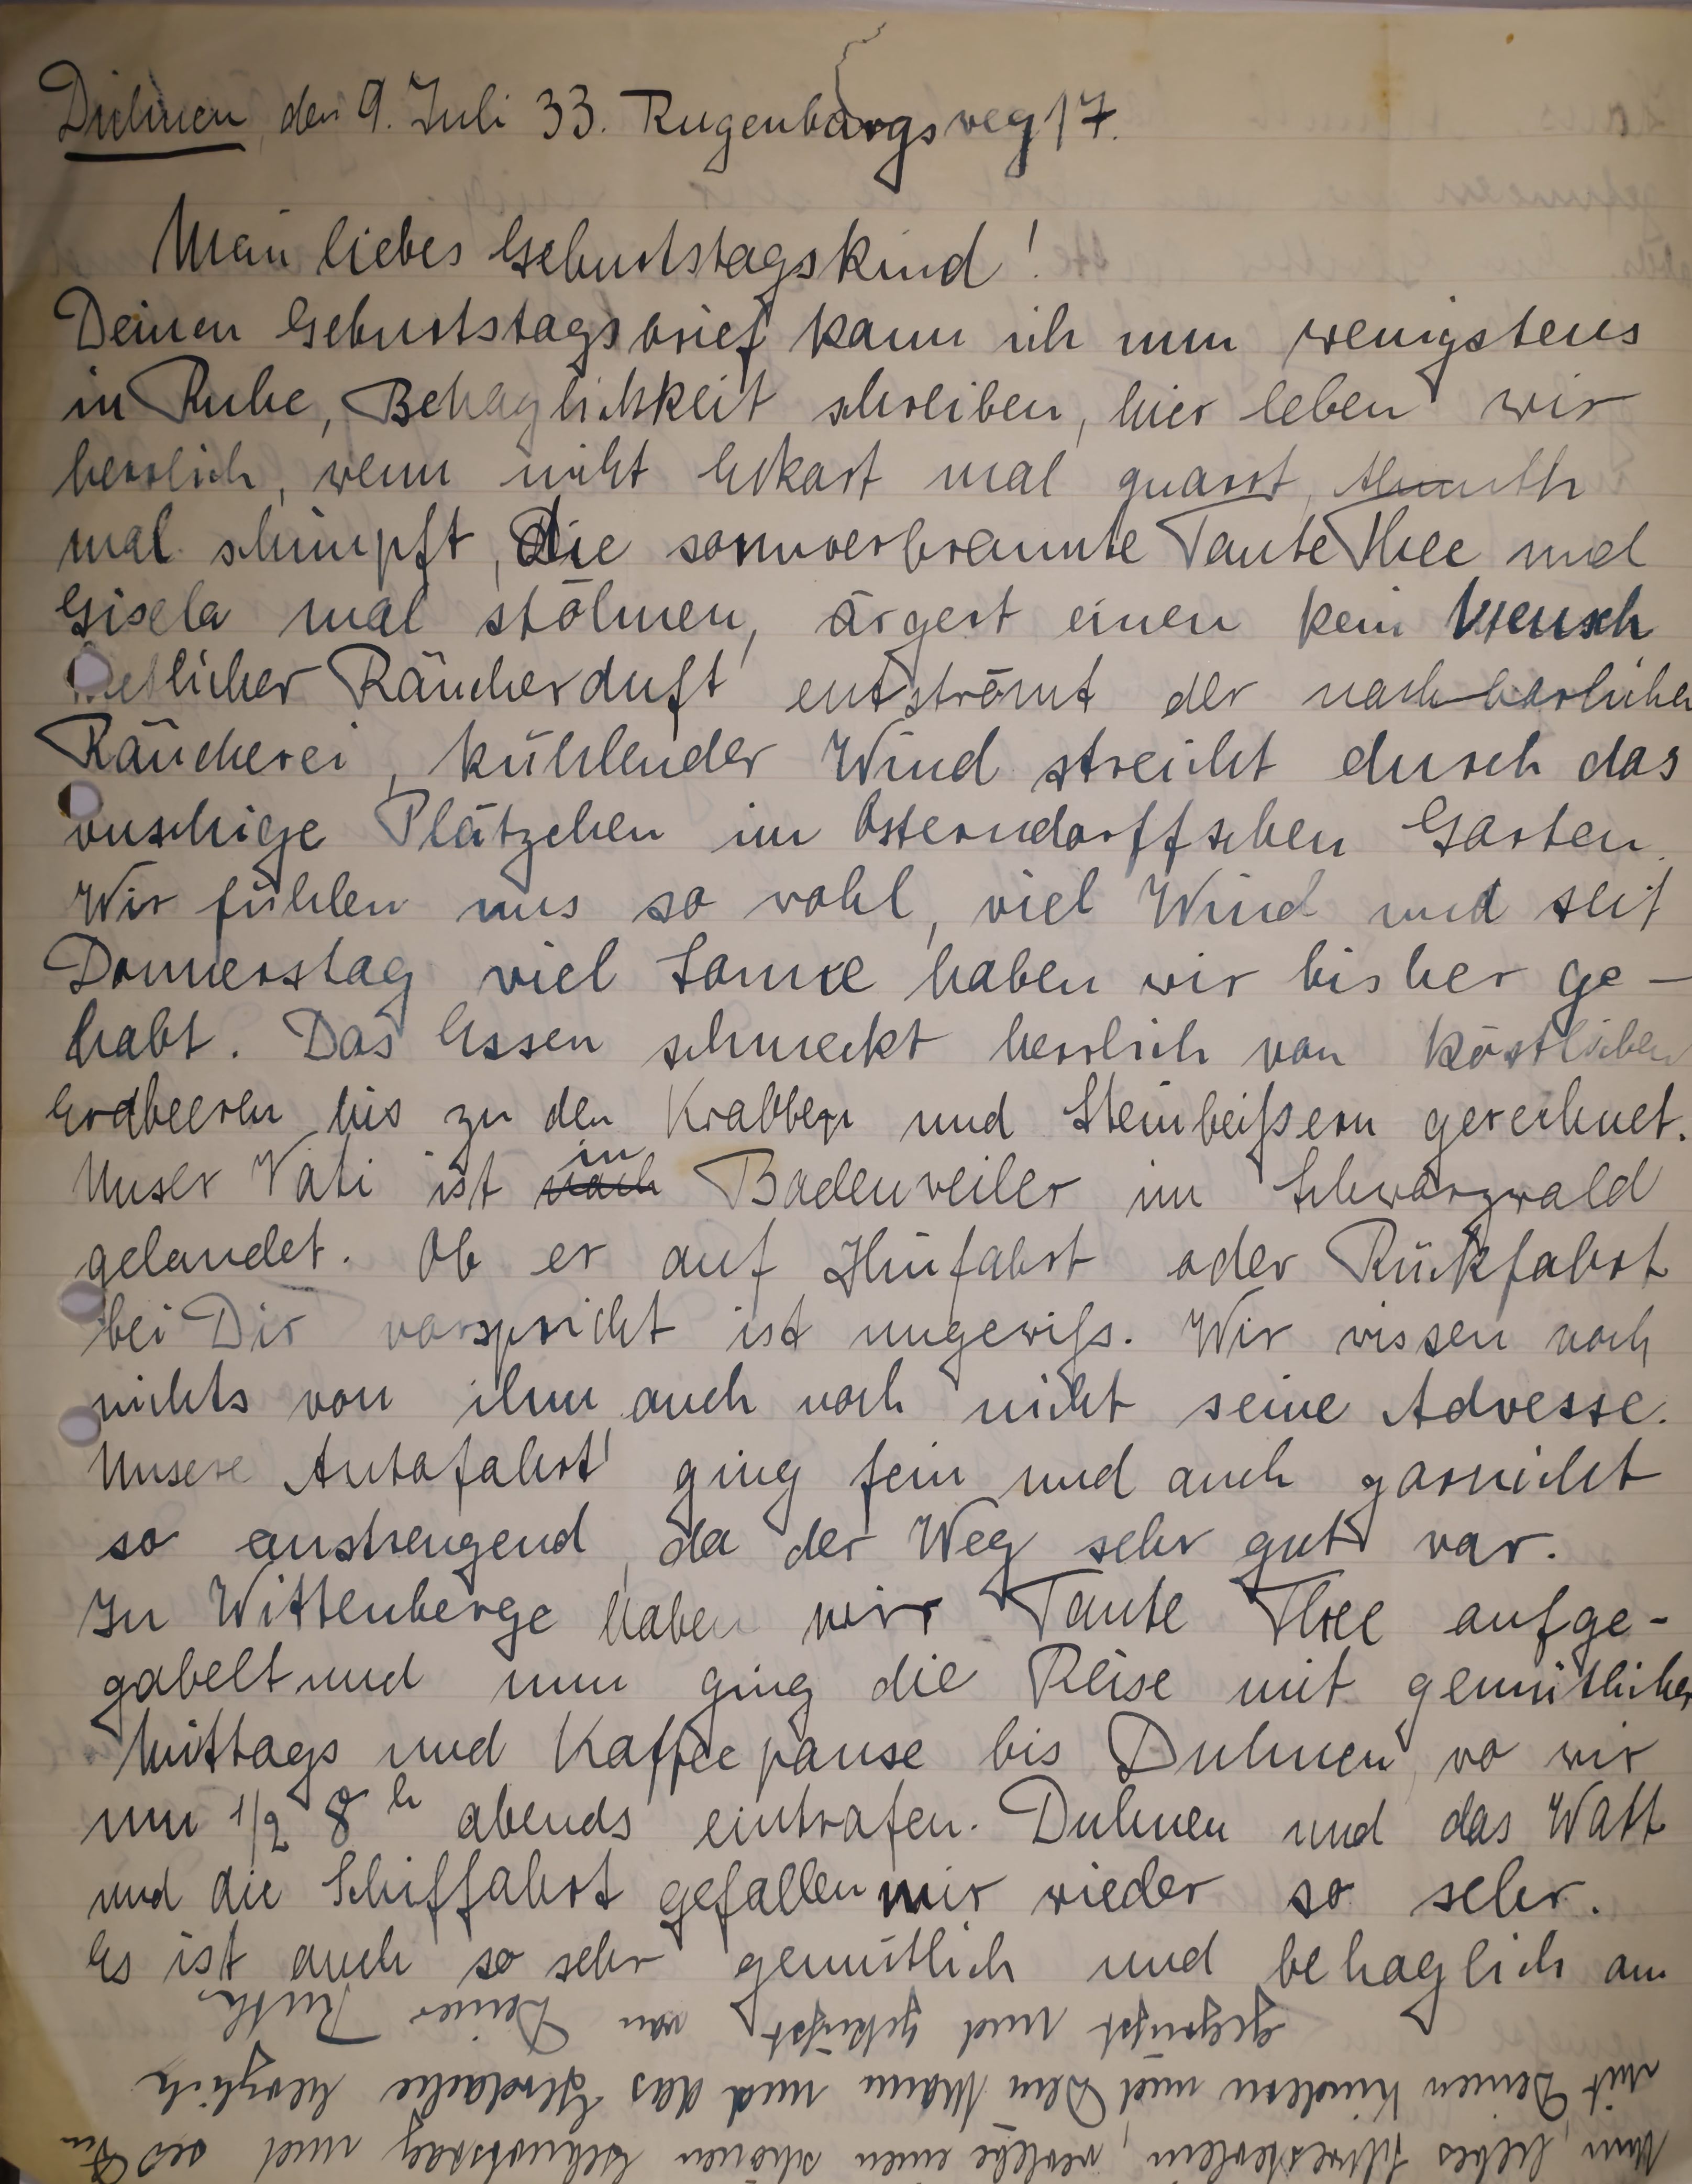 Duhnen, den 9. Juli 33. Rugenbargsweg 17.
Mein liebes Geburtstagskind!
Deinen Geburtstagsbrief kann ich nun wenigstens
in Ruhe, Behaglichkeit schreiben, hier leben wir
herrlich, wenn nicht Eckart mal quarrt, Almuth
mal schimpft, die sonnverbrannte Tante Thee und
Gisela mal stöhnen, ärgert einen kein Mensch
Räucherduft entströmt der nachbarlichen
Räucherei, kühlender Wind streicht durch das
buschige Plätzchen im Osterndorffschen Garten.
Wir fühlen uns so wohl, viel Wind und seit
Donnerstag viel Sonne haben wir bisher ge-
habt. Das Essen schmeckt herrlich von köstlichen
Erdbeeren bis zu den Krabben und Steinbeißern gerechnet.
Unser Vati ist in Badenweiler im Schwarzwald
gelandet. Ob er auf Hinfahrt oder Rückfahrt
bei Dir vorspricht ist ungewiß. Wir wissen noch
nichts von ihm auch noch nicht seine Adresse.
Unsere Autofahrt ging fein und auch garnicht
so anstrengend, da der Weg sehr gut war.
In Wittenberge haben wir Tante Thee aufge-
gabelt und nun ging die Reise mit gemütlicher
Mittags und Kaffeepause bis Duhnen, wo wir
um 1/2 8 h abends eintrafen. Duhnen und das Watt
und die Schiffahrt gefallen mir wieder so sehr.
Es ist auch so sehr gemütlich und behaglich am
Nun, liebes Schwesterlein, verlebe einen schönen Geburtstag und sei Du
mit Deinen Kindern und Dem Mann und das herzlich
gegrüßt und geküßt von Deiner Ruth